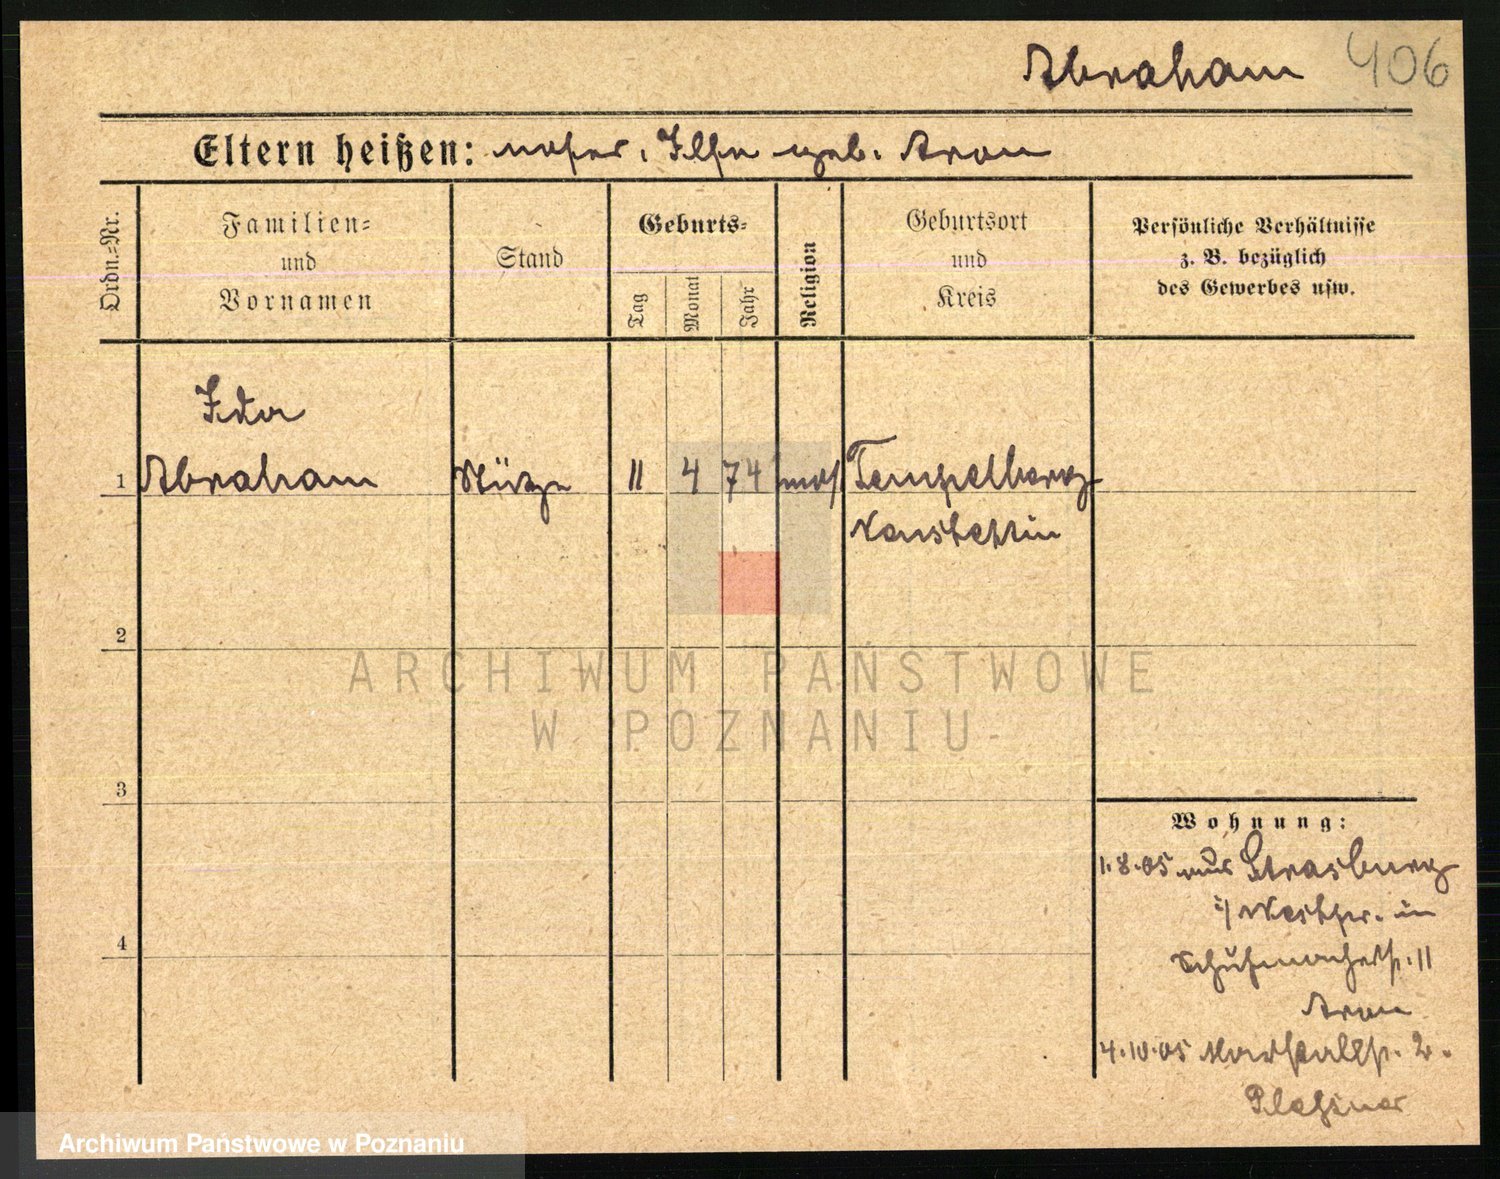 Abraham 406
Eltern heißen: geb. Aron
Ordn.-Nr.
Familien-
und
Vornamen
Stand
Geburts-
Tag
Monat
Jahr
Religion
Geburtsort
und
Kreis
Persönliche Verhältnisse
z. B. bezüglich
des Gewerbes usw.
Ida
1 Abraham Stütze 11 4 74 mos Tempelburg
Neustettin
2
ARCHIWUM PAŃSTWOWE
W POZNANIU
3
4
Wohnung:
1.8.05 aus Strasburg
i/ Westpr. in
Schuhmacherstr. 11
Aron
4.10.05 Marstallstr. 2.
Archiwum Państwowe w Poznaniu